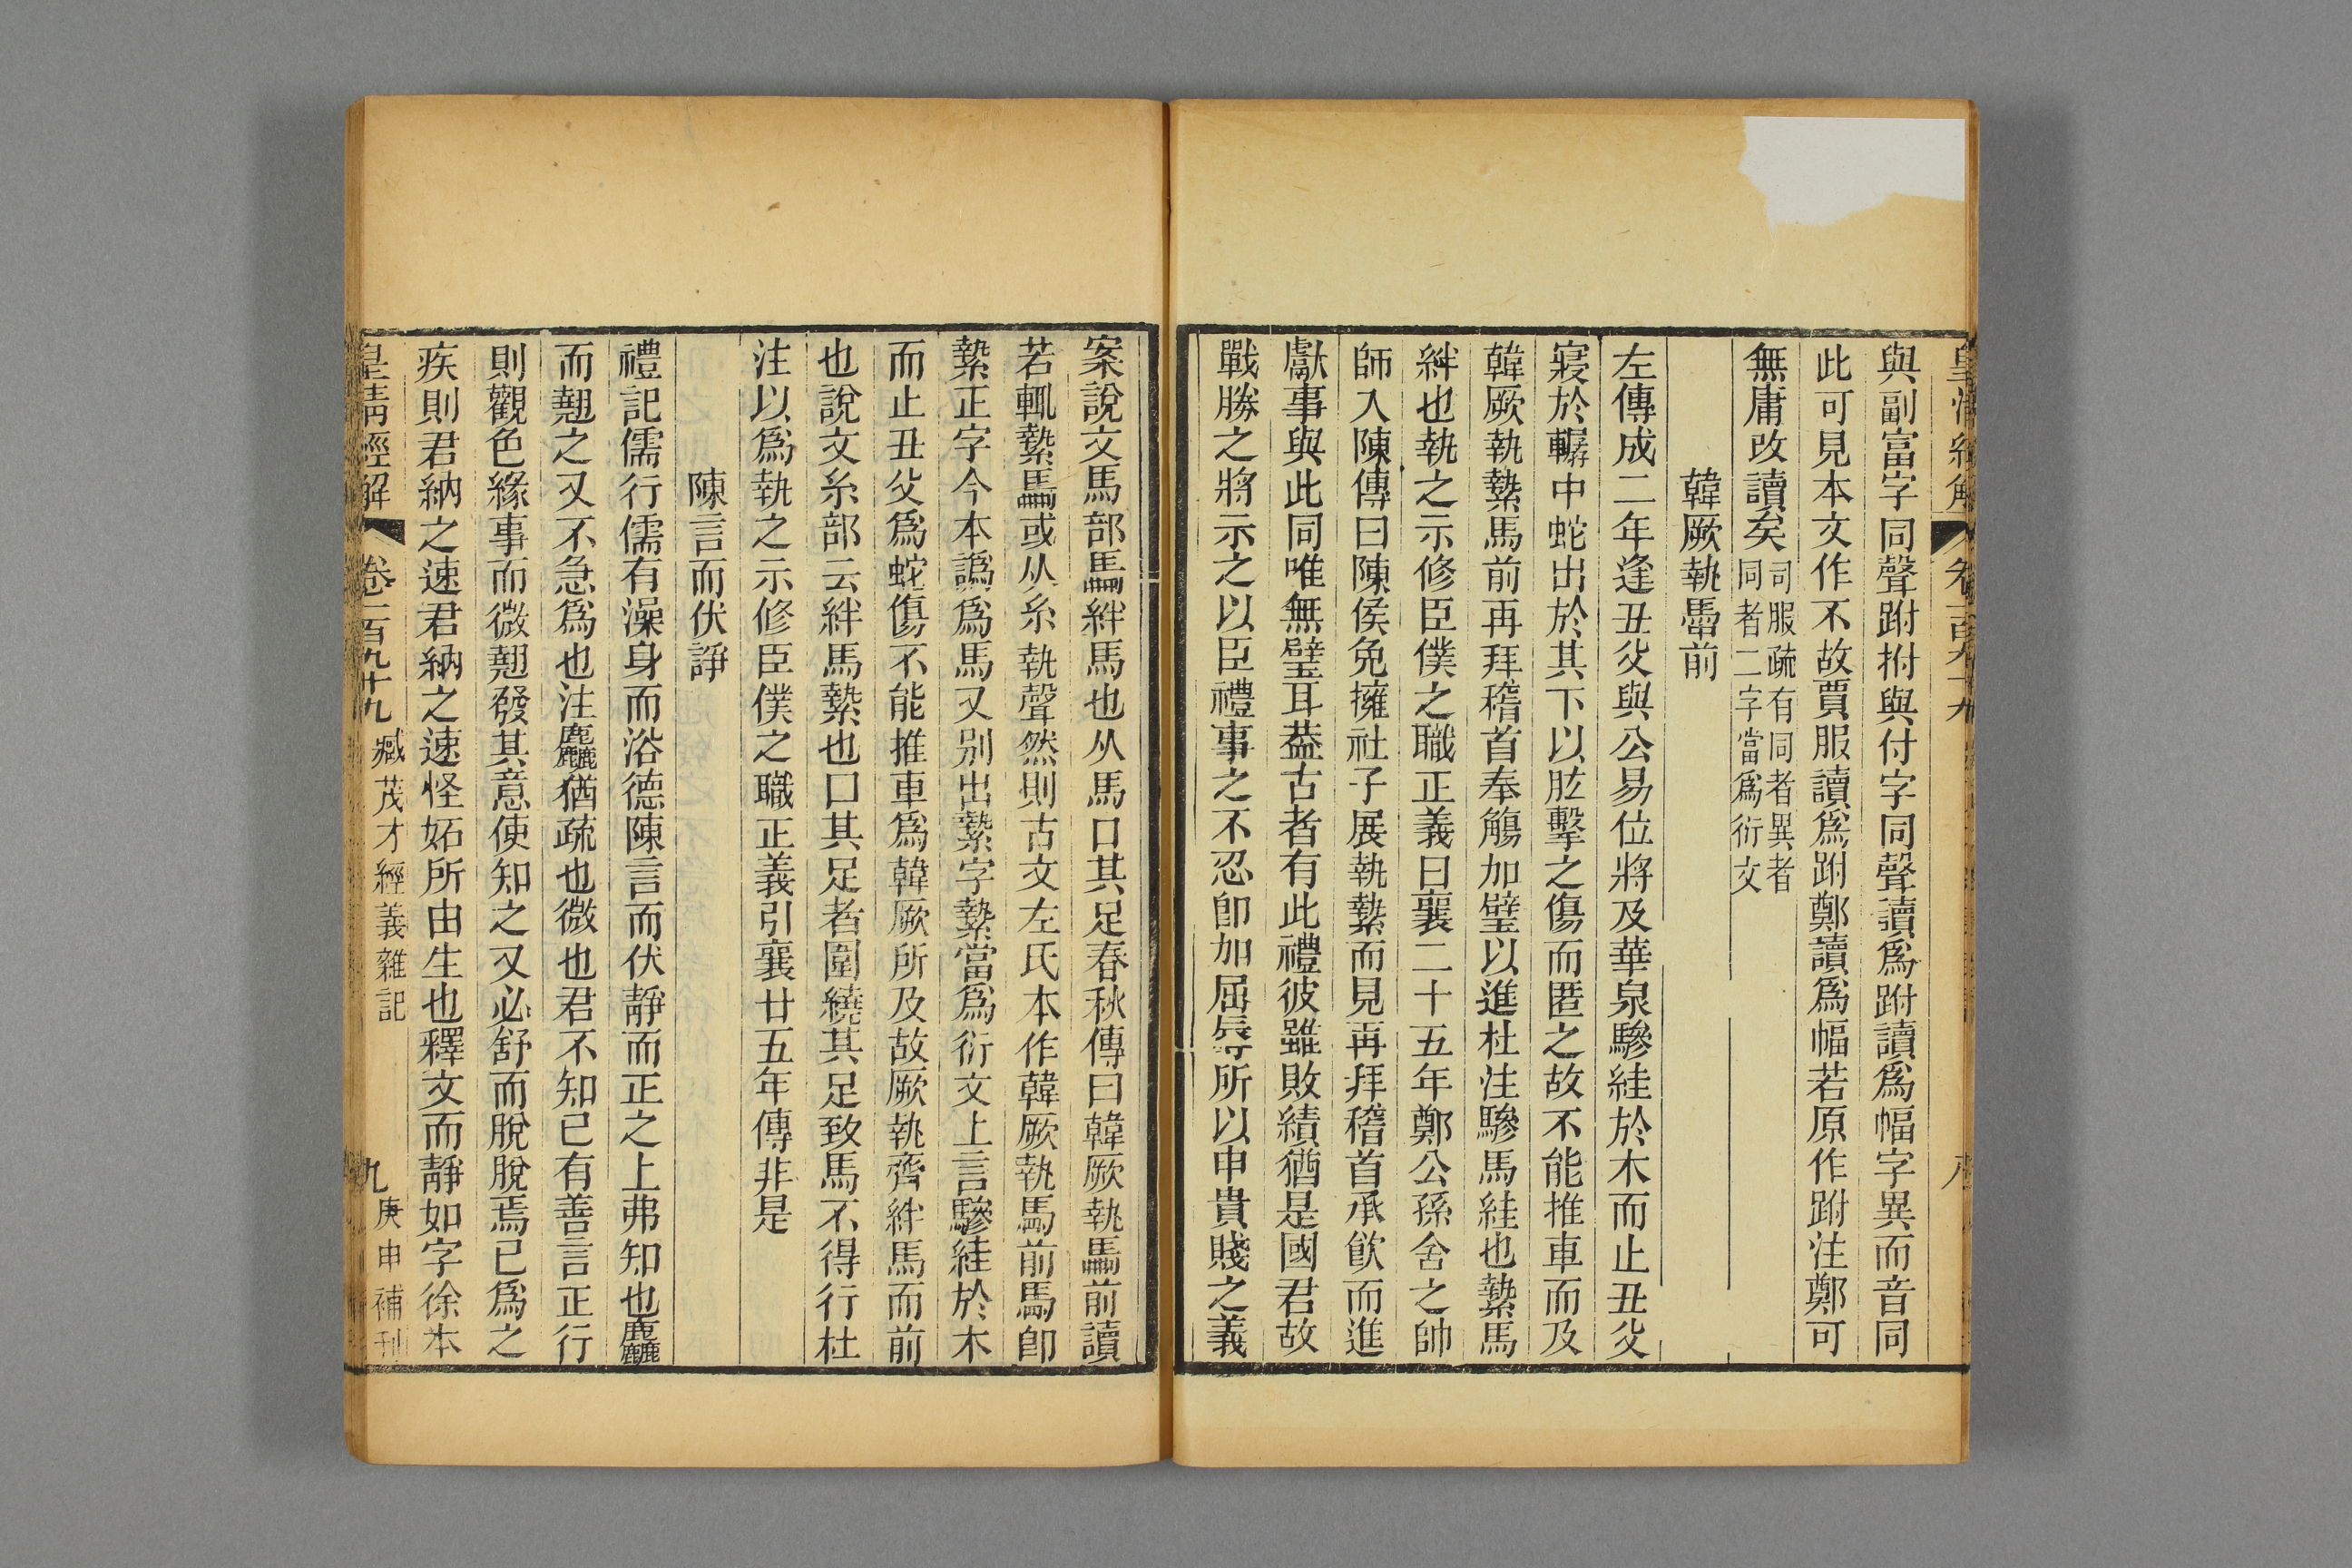 皇清經解
卷一百九十九
八
與副富字同聲跗拊與付字同聲讀爲跗讀爲幅字異而音同
此可見本文作不故賈服讀爲跗鄭讀爲幅若原作跗注鄭可
無庸改讀矣司服疏有同者異者同者二字當爲衍文
韓厥執馽前
左傳成二年逢丑父與公易位將及華泉驂絓於木而止丑父
寢於轏中蛇出於其下以肱擊之傷而匿之故不能推車而及
韓厥執縶馬前再拜稽首奉觴加璧以進杜注驂馬絓也縶馬
絆也執之示修臣僕之職正義曰襄二十五年鄭公孫舍之帥
師入陳傳曰陳侯免擁社子展執縶而見再拜稽首承飲而進
獻事與此同唯無璧耳葢古者有此禮彼雖敗績猶是國君故
戰勝之將示之以臣禮事之不忍卽加屈辱所以申貴賤之義
案說文馬部馽絆馬也从馬口其足春秋傳曰韓厥執馽前讀
若輒縶馽或从糸執聲然則古文左氏本作韓厥執馽前馽卽
縶正字今本譌爲馬又別出縶字縶當爲衍文上言驂絓於木
而止丑父爲蛇傷不能推車爲韓厥所及故厥執齊絆馬而前
也說文糸部云絆馬縶也口其足者圍繞其足致馬不得行杜
注以爲執之示修臣僕之職正義引襄廿五年傳非是
陳言而伏諍
禮記儒行儒有澡身而浴德陳言而伏靜而正之上弗知也麤
而翹之又不急爲也注麤猶疏也微也君不知已有善言正行
則觀色緣事而微翹發其意使知之又必舒而脫脫焉已爲之
疾則君納之速君納之速怪妬所由生也釋文而靜如字徐本
皇清經解
卷一百九十九
臧茂才經義雜記
九
庚申補刊